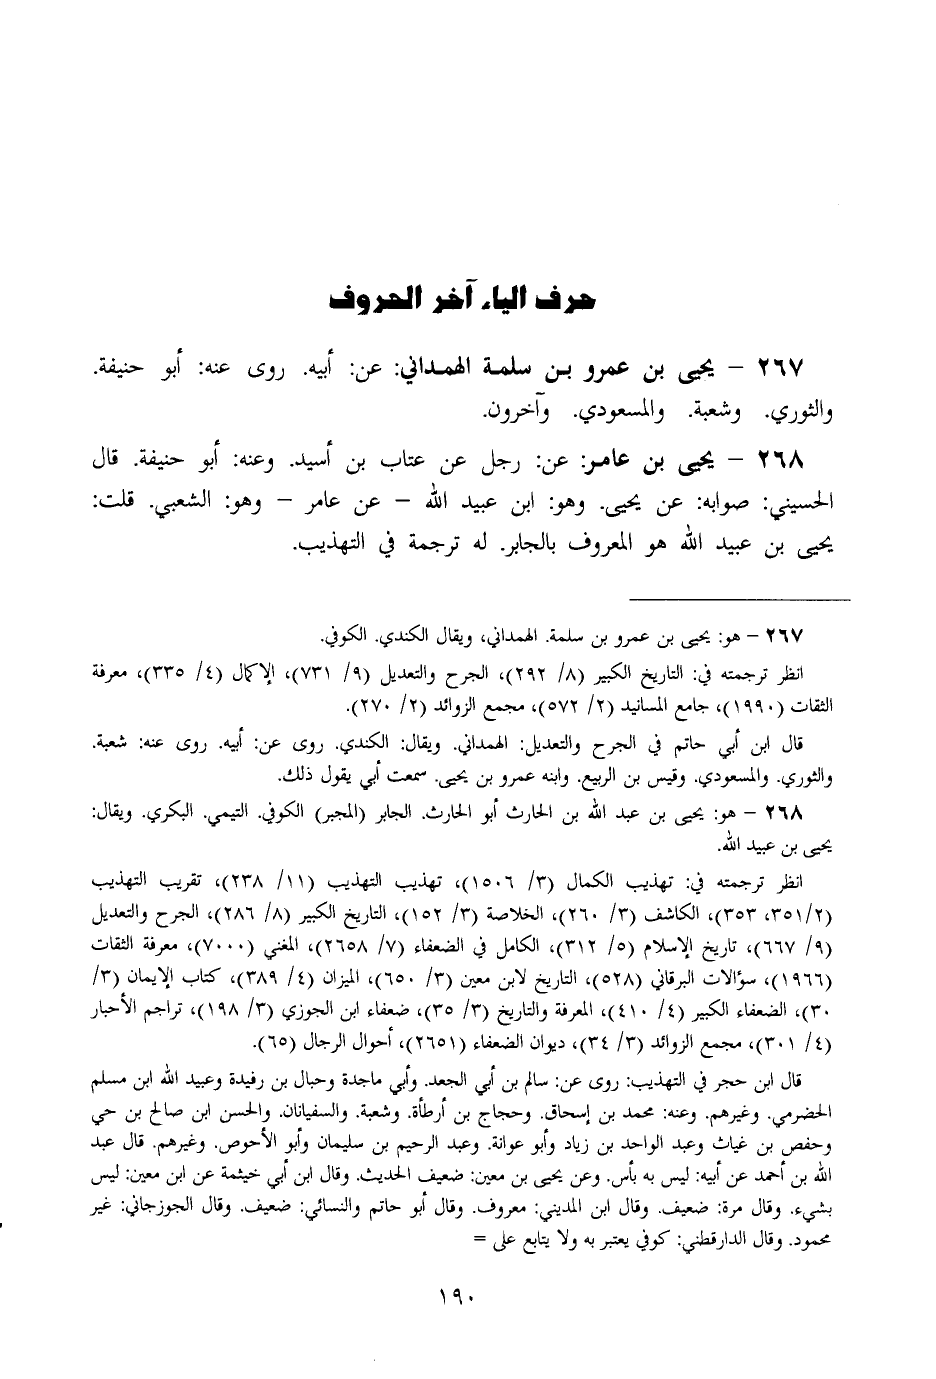 حرف الياء آخر الحروف
٢٦٧ – يحيى بن عمرو بن سلمة الهمداني: عن: أبيه. روى عنه: أبو حنيفة.
والثوري. وشعبة. والمسعودي. وآخرون.
٢٦٨ – يحيى بن عامر: عن: رجل عن عتاب بن أسيد. وعنه: أبو حنيفة. قال
الحسيني: صوابه: عن يحيى. وهو: ابن عبيد الله – عن عامر – وهو: الشعبي. قلت:
يحيى بن عبيد الله هو المعروف بالجابر. له ترجمة في التهذيب.
٢٦٧ – هو: يحيى بن عمرو بن سلمة. الهمداني، ويقال الكندي. الكوفي.
انظر ترجمته في: التاريخ الكبير (٨/ ٢٩٢)، الجرح والتعديل (٩/ ٧٣١)، الإكمال (٤/ ٣٣٥)، معرفة
الثقات (١٩٩٠)، جامع المسانيد (٢/ ٥٧٢)، مجمع الزوائد (٢/ ٢٧٠).
قال ابن أبي حاتم في الجرح والتعديل: الهمداني. ويقال: الكندي. روى عن: أبيه. روى عنه: شعبة.
والثوري. والمسعودي. وقيس بن الربيع. وابنه عمرو بن يحيى. سمعت أبي يقول ذلك.
٢٦٨ – هو: يحيى بن عبد الله بن الحارث أبو الحارث. الجابر (المجبر) الكوفي. التيمي. البكري. ويقال:
يحيى بن عبيد الله.
انظر ترجمته في: تهذيب الكمال (٣/ ١٥٠٦)، تهذيب التهذيب (١١/ ٢٣٨)، تقريب التهذيب
(٣٥١/٢، ٣٥٣)، الكاشف (٣/ ٢٦٠)، الخلاصة (٣/ ١٥٢)، التاريخ الكبير (٨/ ٢٨٦)، الجرح والتعديل
(٩/ ٦٦٧)، تاريخ الإسلام (٥/ ٣١٢)، الكامل في الضعفاء (٧/ ٢٦٥٨)، المغني (٧٠٠٠)، معرفة الثقات
(١٩٦٦)، سؤالات البرقاني (٥٢٨)، التاريخ لابن معين (٣/ ٦٥٠)، الميزان (٤/ ٣٨٩)، كتاب الإيمان (٣/
٣٠)، الضعفاء الكبير (٤/ ٤١٠)، المعرفة والتاريخ (٣/ ٣٥)، ضعفاء ابن الجوزي (٣/ ١٩٨)، تراجم الأحبار
(٤/ ٣٠١)، مجمع الزوائد (٣/ ٣٤)، ديوان الضعفاء (٢٦٥١)، أحوال الرجال (٦٥).
قال ابن حجر في التهذيب: روى عن: سالم بن أبي الجعد. وأبي ماجدة وحبال بن رفيدة وعبيد الله ابن مسلم
الحضرمي. وغيرهم. وعنه: محمد بن إسحاق. وحجاج بن أرطأة. وشعبة. والسفيانان. والحسن ابن صالح بن حي
وحفص بن غياث وعبد الواحد بن زياد وأبو عوانة. وعبد الرحيم بن سليمان وأبو الأحوص. وغيرهم. قال عبد
الله بن أحمد عن أبيه: ليس به بأس. وعن يحيى بن معين: ضعيف الحديث. وقال ابن أبي خيثمة عن ابن معين: ليس
بشيء. وقال مرة: ضعيف. وقال ابن المديني: معروف. وقال أبو حاتم والنسائي: ضعيف. وقال الجوزجاني: غير
محمود. وقال الدارقطني: كوفي يعتبر به ولا يتابع على =
١٩٠